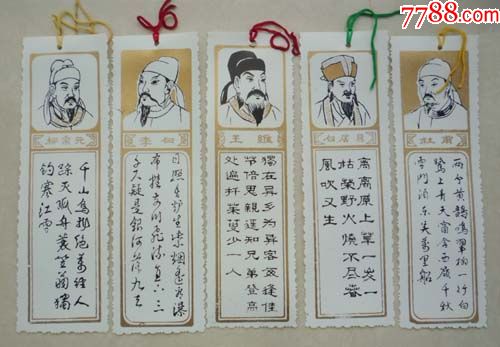 7788.com
中国收藏热线
柳宗元
千山鳥飛絕萬徑人
踪灭孤舟蓑笠翁獨
钓寒江雪
李白
日照香炉生紫烟遥看瀑
布挂前川飞流直下三
千尺疑是銀河落九天
王維
獨在异乡为异客每逢佳
節倍思親遥知兄弟登高
处遍插茱萸少一人
白居易
离离原上草一岁一
枯榮野火燒不尽春
風吹又生
杜甫
两个黄鹂鳴翠柳一行白
鷺上青天窗含西嶺千秋
雪门泊东吴萬里船